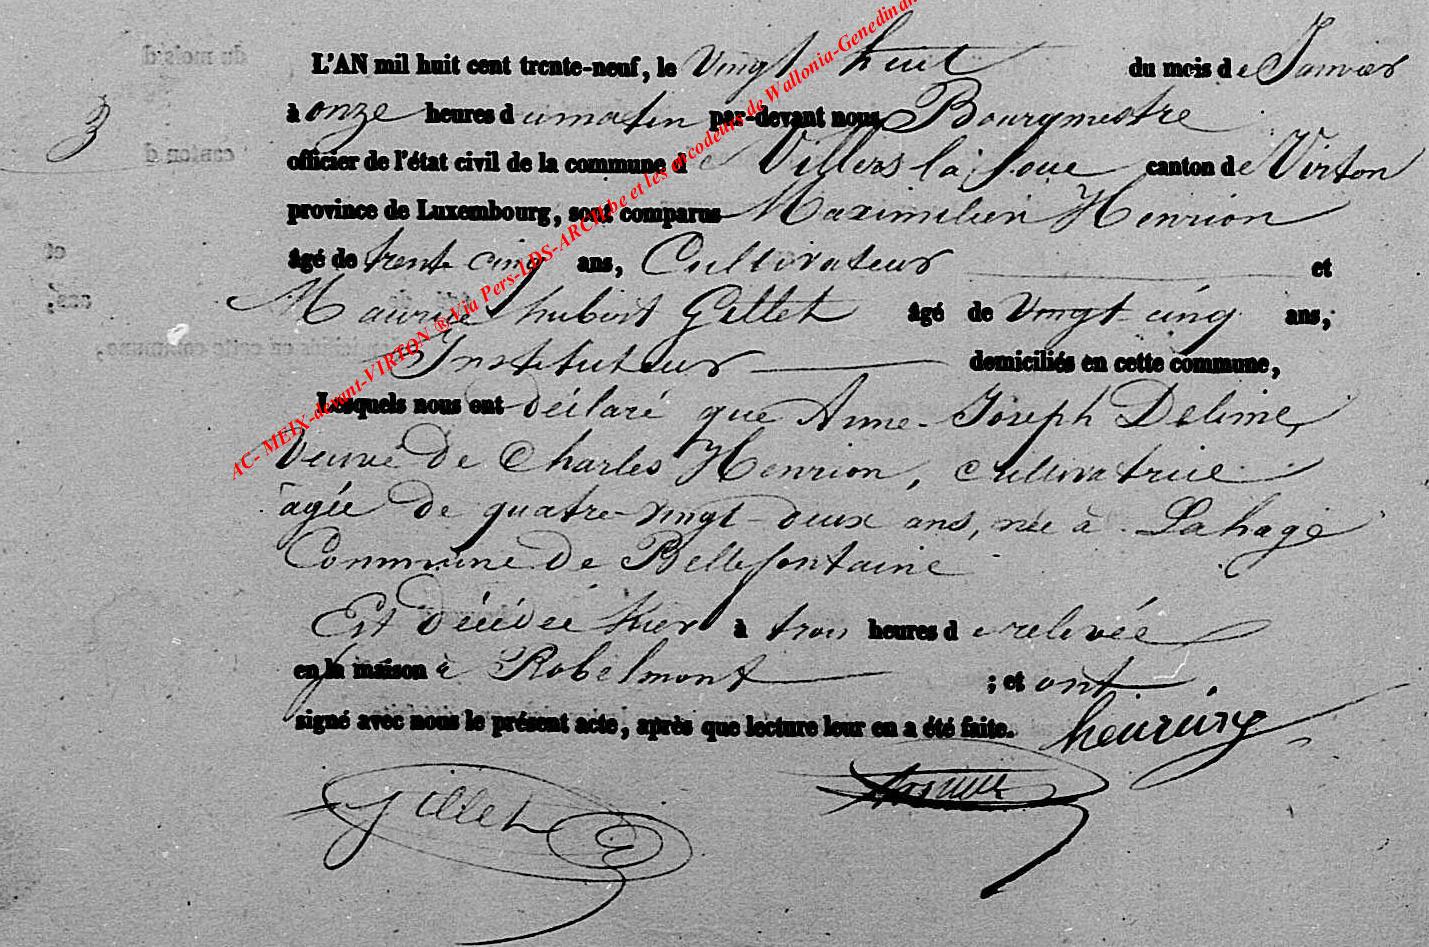 L'AN mil huit cent trente-neuf, le Vingt huit du mois de Janvier
3
à onze heures du matin par-devant nous Bourgmestre
officier de l'état civil de la commune de Villers la Loue canton de Virton
province de Luxembourg, sont comparus Maximilien Henrion
âgé de trente cinq ans, Cultivateur et
Maurice hubert Gillet âgé de Vingt cinq ans,
Instituteur domiciliés en cette commune,
Lesquels nous ont déclaré que Anne-Joseph Delime,
Veuve de Charles Henrion, cultivatrice
agée de quatre-vingt-deux ans, née à Lahage
Commune de Bellefontaine
Est décédée hier à trois heures de relevée
en la maison à Robelmont ; et ont
signé avec nous le présent acte, après que lecture leur en a été faite.
henrion
Gillet
AC- MEIX-devant-VIRTON ® Via Pers-LDS-ARCH.be et les encodeurs de Wallonia-Genedinan